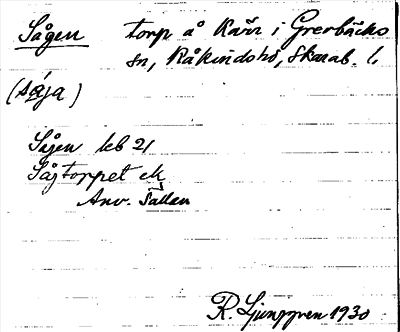 Sågen torp å Karr i Grerbäcks
sn, Kåkinds hd, Skarab. l.
(såja)
Sågen leb 21
Sågtorpet ek
Anv. Sållan
R. Ljunggren 1930